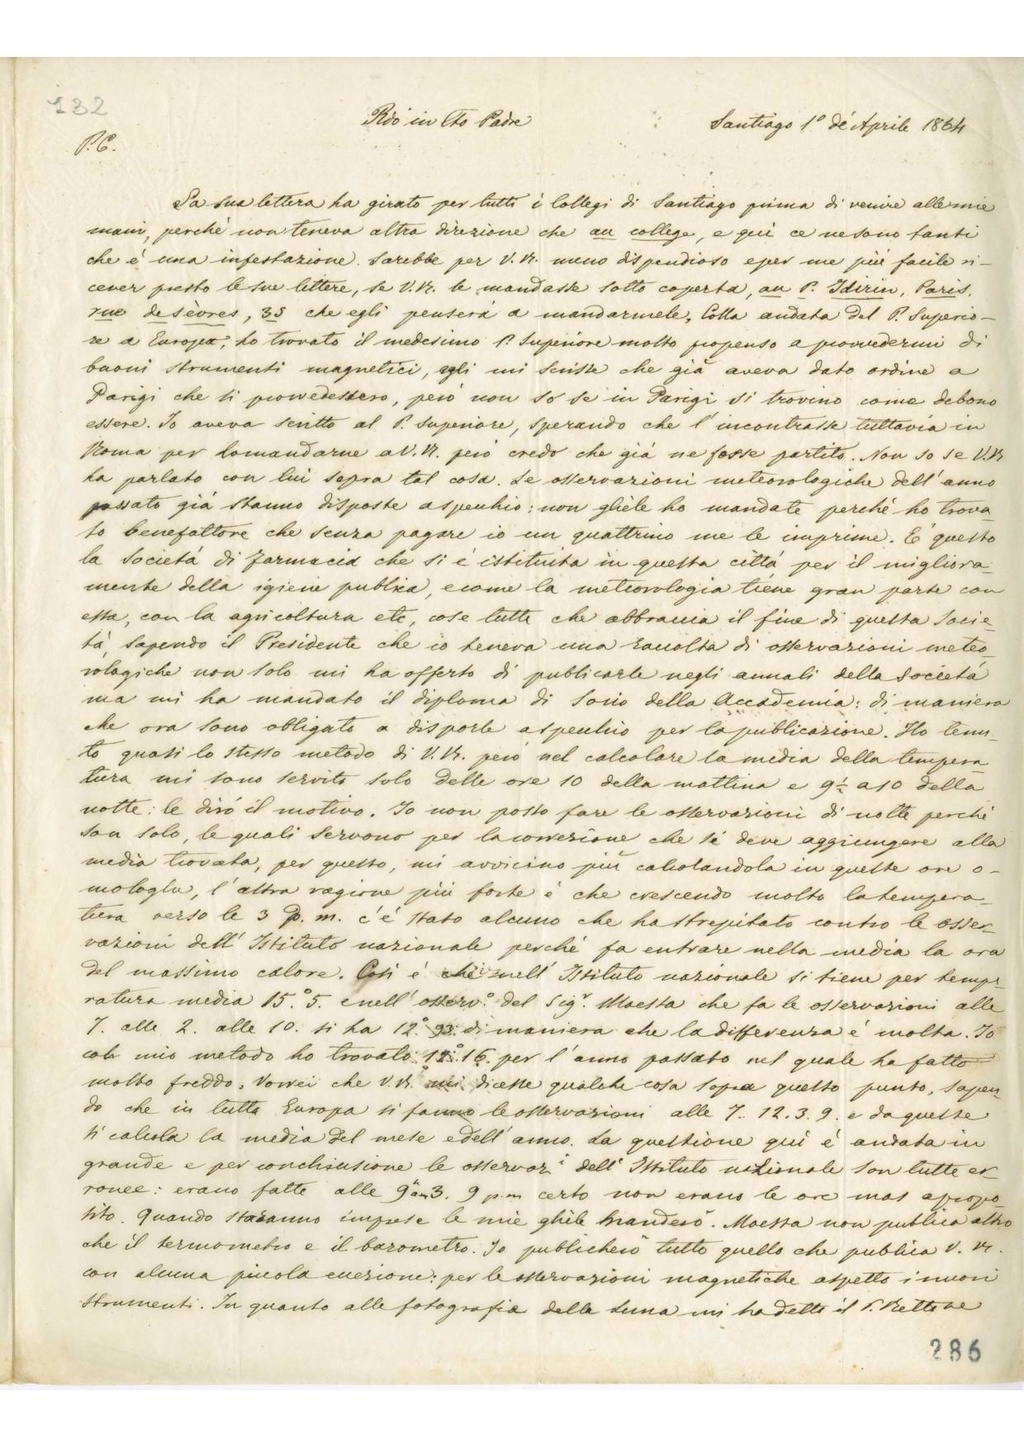 132
Rdo in Cto Padre
Santiago 1º dé Aprile 1864
P.C.
La sua lettera ha girato per tutti i Collegi di Santiago prima di venire alle mie
mani, perchè non teneva altra direzione che au college, e quì ce ne sono tanti
che è una infestazione. Sarebbe per V.R. meno dispendioso e per me piú facile ri-
cever presto le sue lettere, se V.R. le mandasse sotto coperta, au P. Paris,
rue de Sèvres, 35 che egli penserá a mandarmele. Colla andata del P. Superio-
re a Europa, ho trovato il medesimo P. Superiore molto propenso a provvedermi di
buoni strumenti magnetici, egli mi scrisse che giá aveva dato ordine a
Parigi che si provvedessero, peró non so se in Parigi si trovino come debono
essere. Io aveva scritto al P. Superiore, sperando che l'incontrasse tuttavia in
Roma per lomandarne a V.R. peró credo che giá ne fosse partito. Non so se V.R.
ha parlato con lui sopra tal cosa. Le osservazioni meteorologiche dell'anno
passato giá stanno disposte a specchio: non gliele ho mandate perchè ho trova-
to benefattore che senza pagare io un quattrino me le imprime. É questo
la Societá di farmacia che si é istituita in questa cittá per il migliora-
mente della igiene publica, e come la meteorologia tiene gran parte con
essa, con la agricoltura etc, cose tutte che abbraccia il fine di questa Socie-
tá, sapendo il Presidente che io teneva una raccolta di osservazioni meteo-
rologiche non solo mi ha offerto di publicarle negli annali della Societá
ma mi ha mandato il diploma di Socio della Accademia: di maniera
che ora sono obligato a disporle a specchio per la publicazione. Ho tenu-
to quasi lo stesso metodo di V.R. peró nel calcolare la media della tempera-
tura mi sono servito solo delle ore 10 della mattina e 9½ a 10 della
notte: le diró il motivo. Io non posso fare le osservazioni di notte perchè
son solo, le quali servono per la correzione che si deve aggiungere alla
media trovata, per questo, mi avvicino piú calcolandola in queste ore o-
mologhe, l'altra ragione piú forte é che crescendo molto la tempera-
tura verso le 3 p.m. c'é stato alcuno che ha strepitato contro le osser-
vazioni dell'Istituto nazionale perchè fa entrare nella media la ora
del massimo calore. Cosí é che nell'Istituto nazionale si tiene per tempe-
ratura media 15.°5. e nell'osserv.° del Sigr. Maesta che fa le osservazioni alle
7. alle 2. alle 10. si ha 12.° 93. di maniera che la differenza é molta. Io
col mio metodo ho trovato 12.°16. per l'anno passato nel quale ha fatto
molto freddo. Vorrei che V.R. mi dicesse qualche cosa sopra questo punto, sapen-
do che in tutta Europa si fanno le osservazioni alle 7. 12. 3. 9. e da queste
si calcola la media del mese e dell'anno. La questione qui é andata in
grande e per conchiusione le osservaz.i dell'Istituto nazionale son tutte er-
ronee: erano fatte alle 9 am 3. 9 p.m certo non erano le ore mas apropo-
sito. Quando staranno imprese le mie gliele manderó. Maesta non publica altro
che il termometro e il barometro. Io publicheró tutto quello che publica V.R.
con alcuna piccola : per le osservazioni magnetiche aspetto i nuovi
strumenti. In quanto alle fotografia della Luna mi ha detto il P. Rettore
286